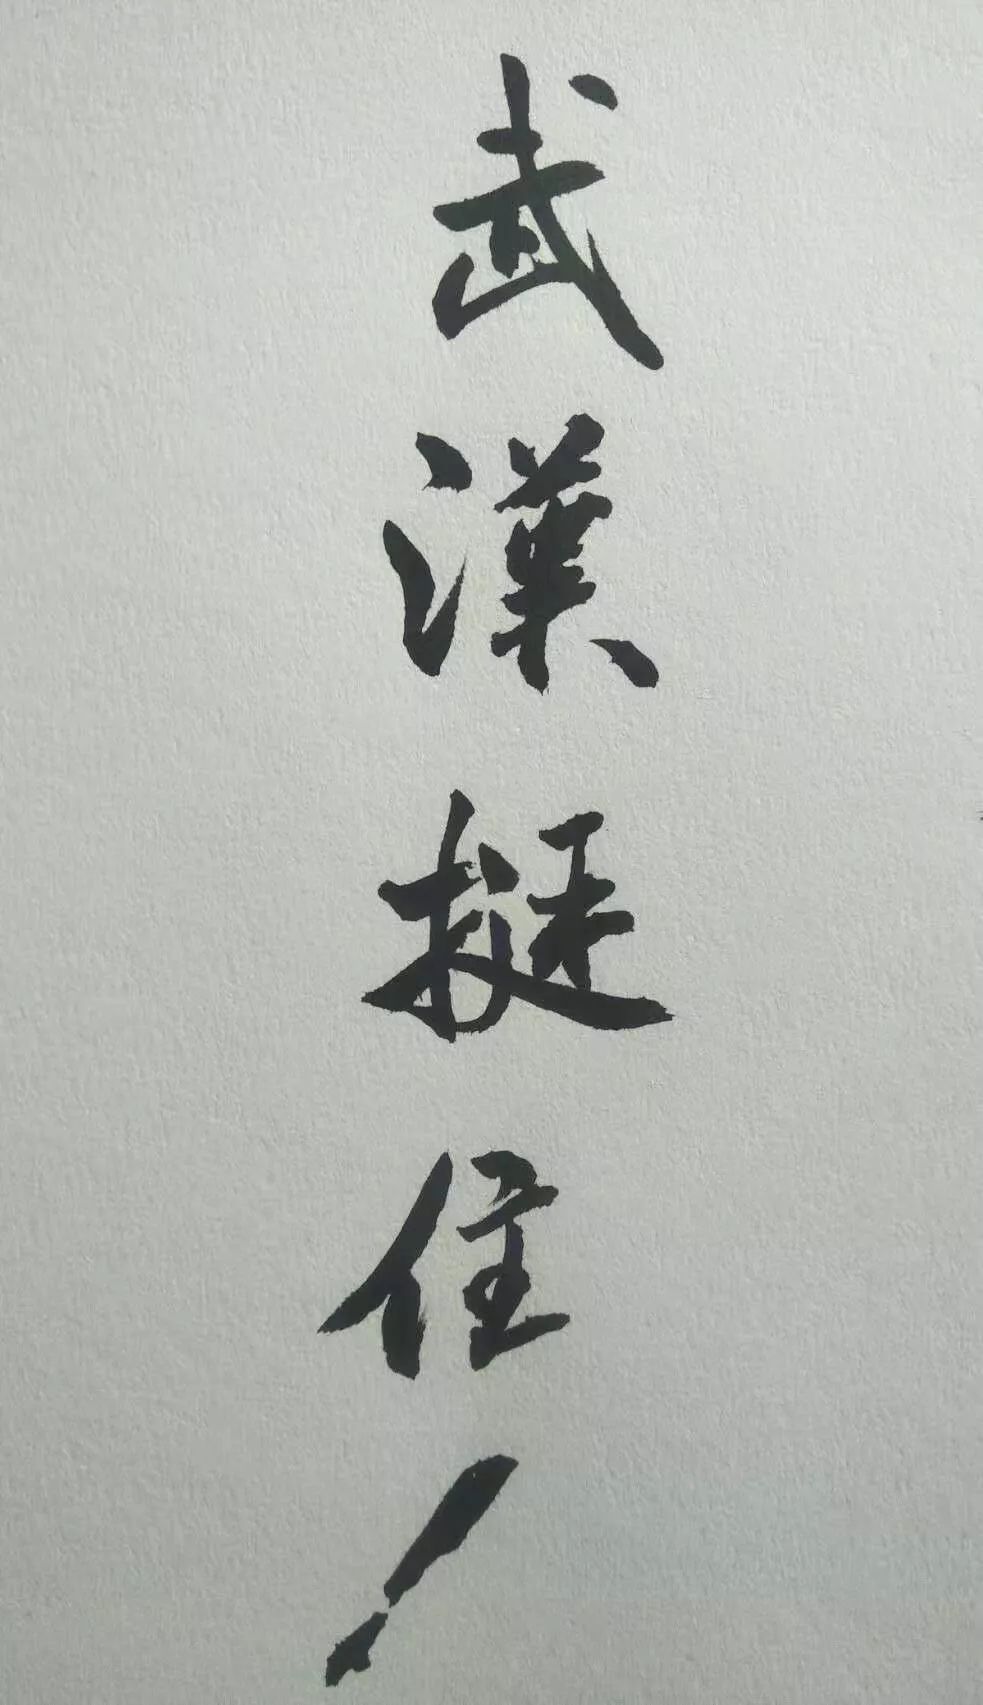 武漢挺住！